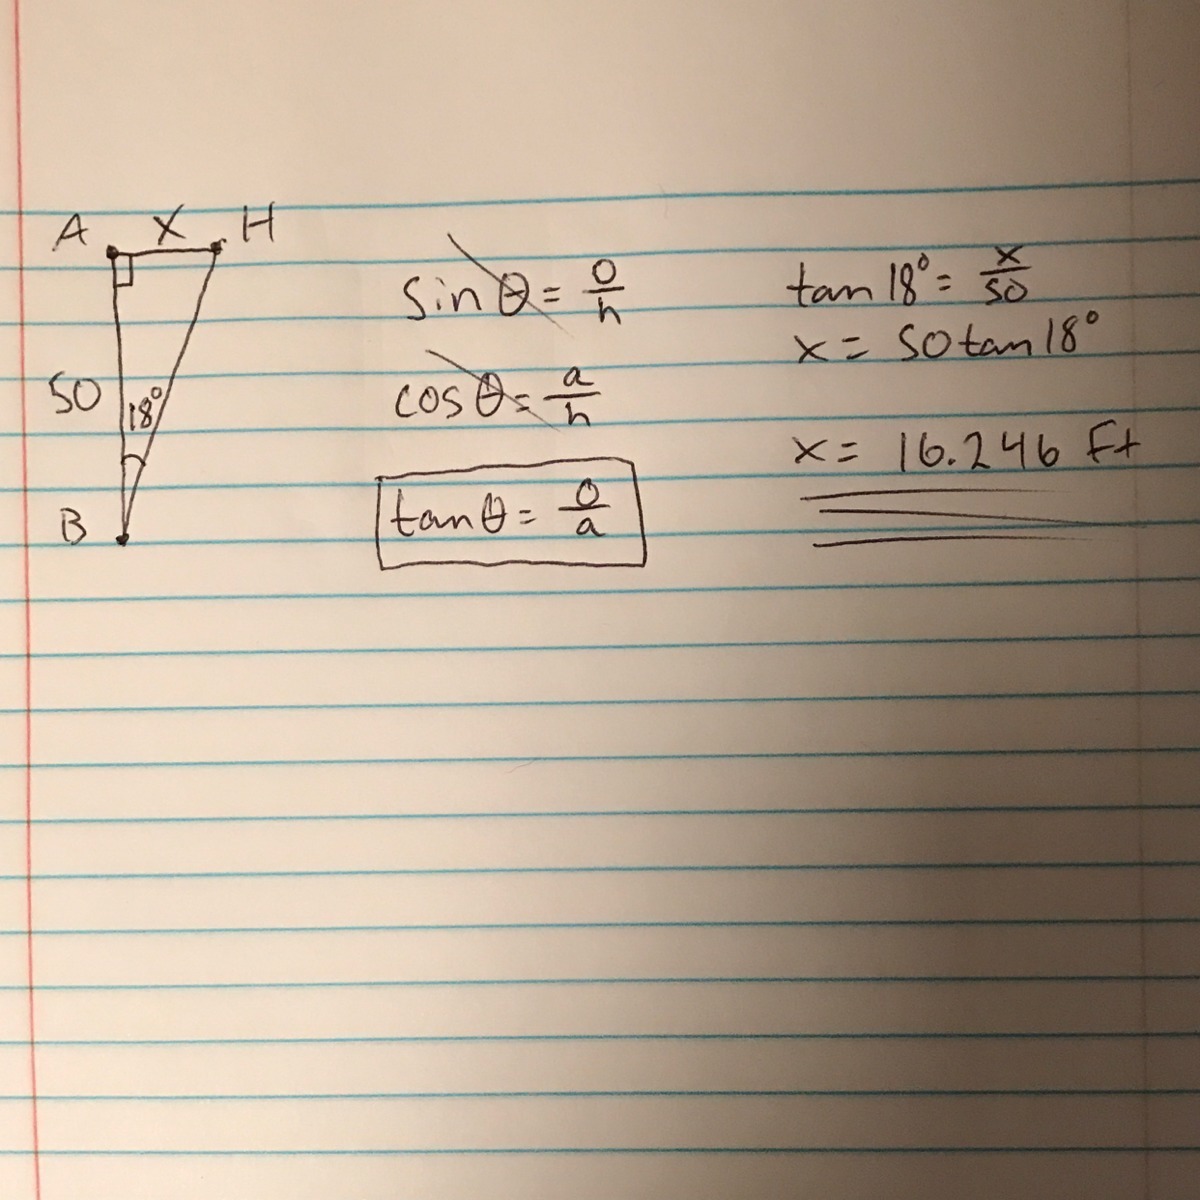 A x H
50
18°
B
sin θ = o/h
cos θ = a/h
tan θ = o/a
tan 18° = x/50
x = 50 tan 18°
x = 16.246 Ft